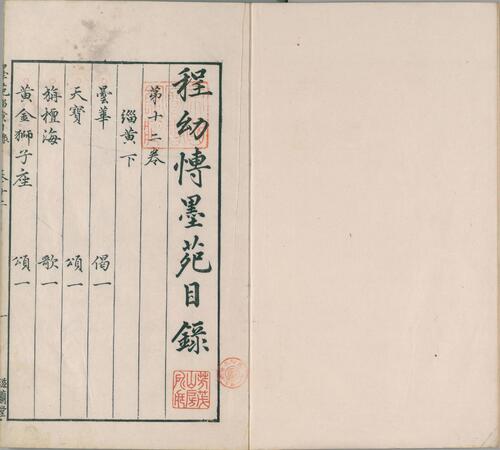 程幼博墨苑目錄
第十二卷
緇黃下
曇華 偈一
天寶 頌一
旃檀海 歌一
黃金獅子座 頌一